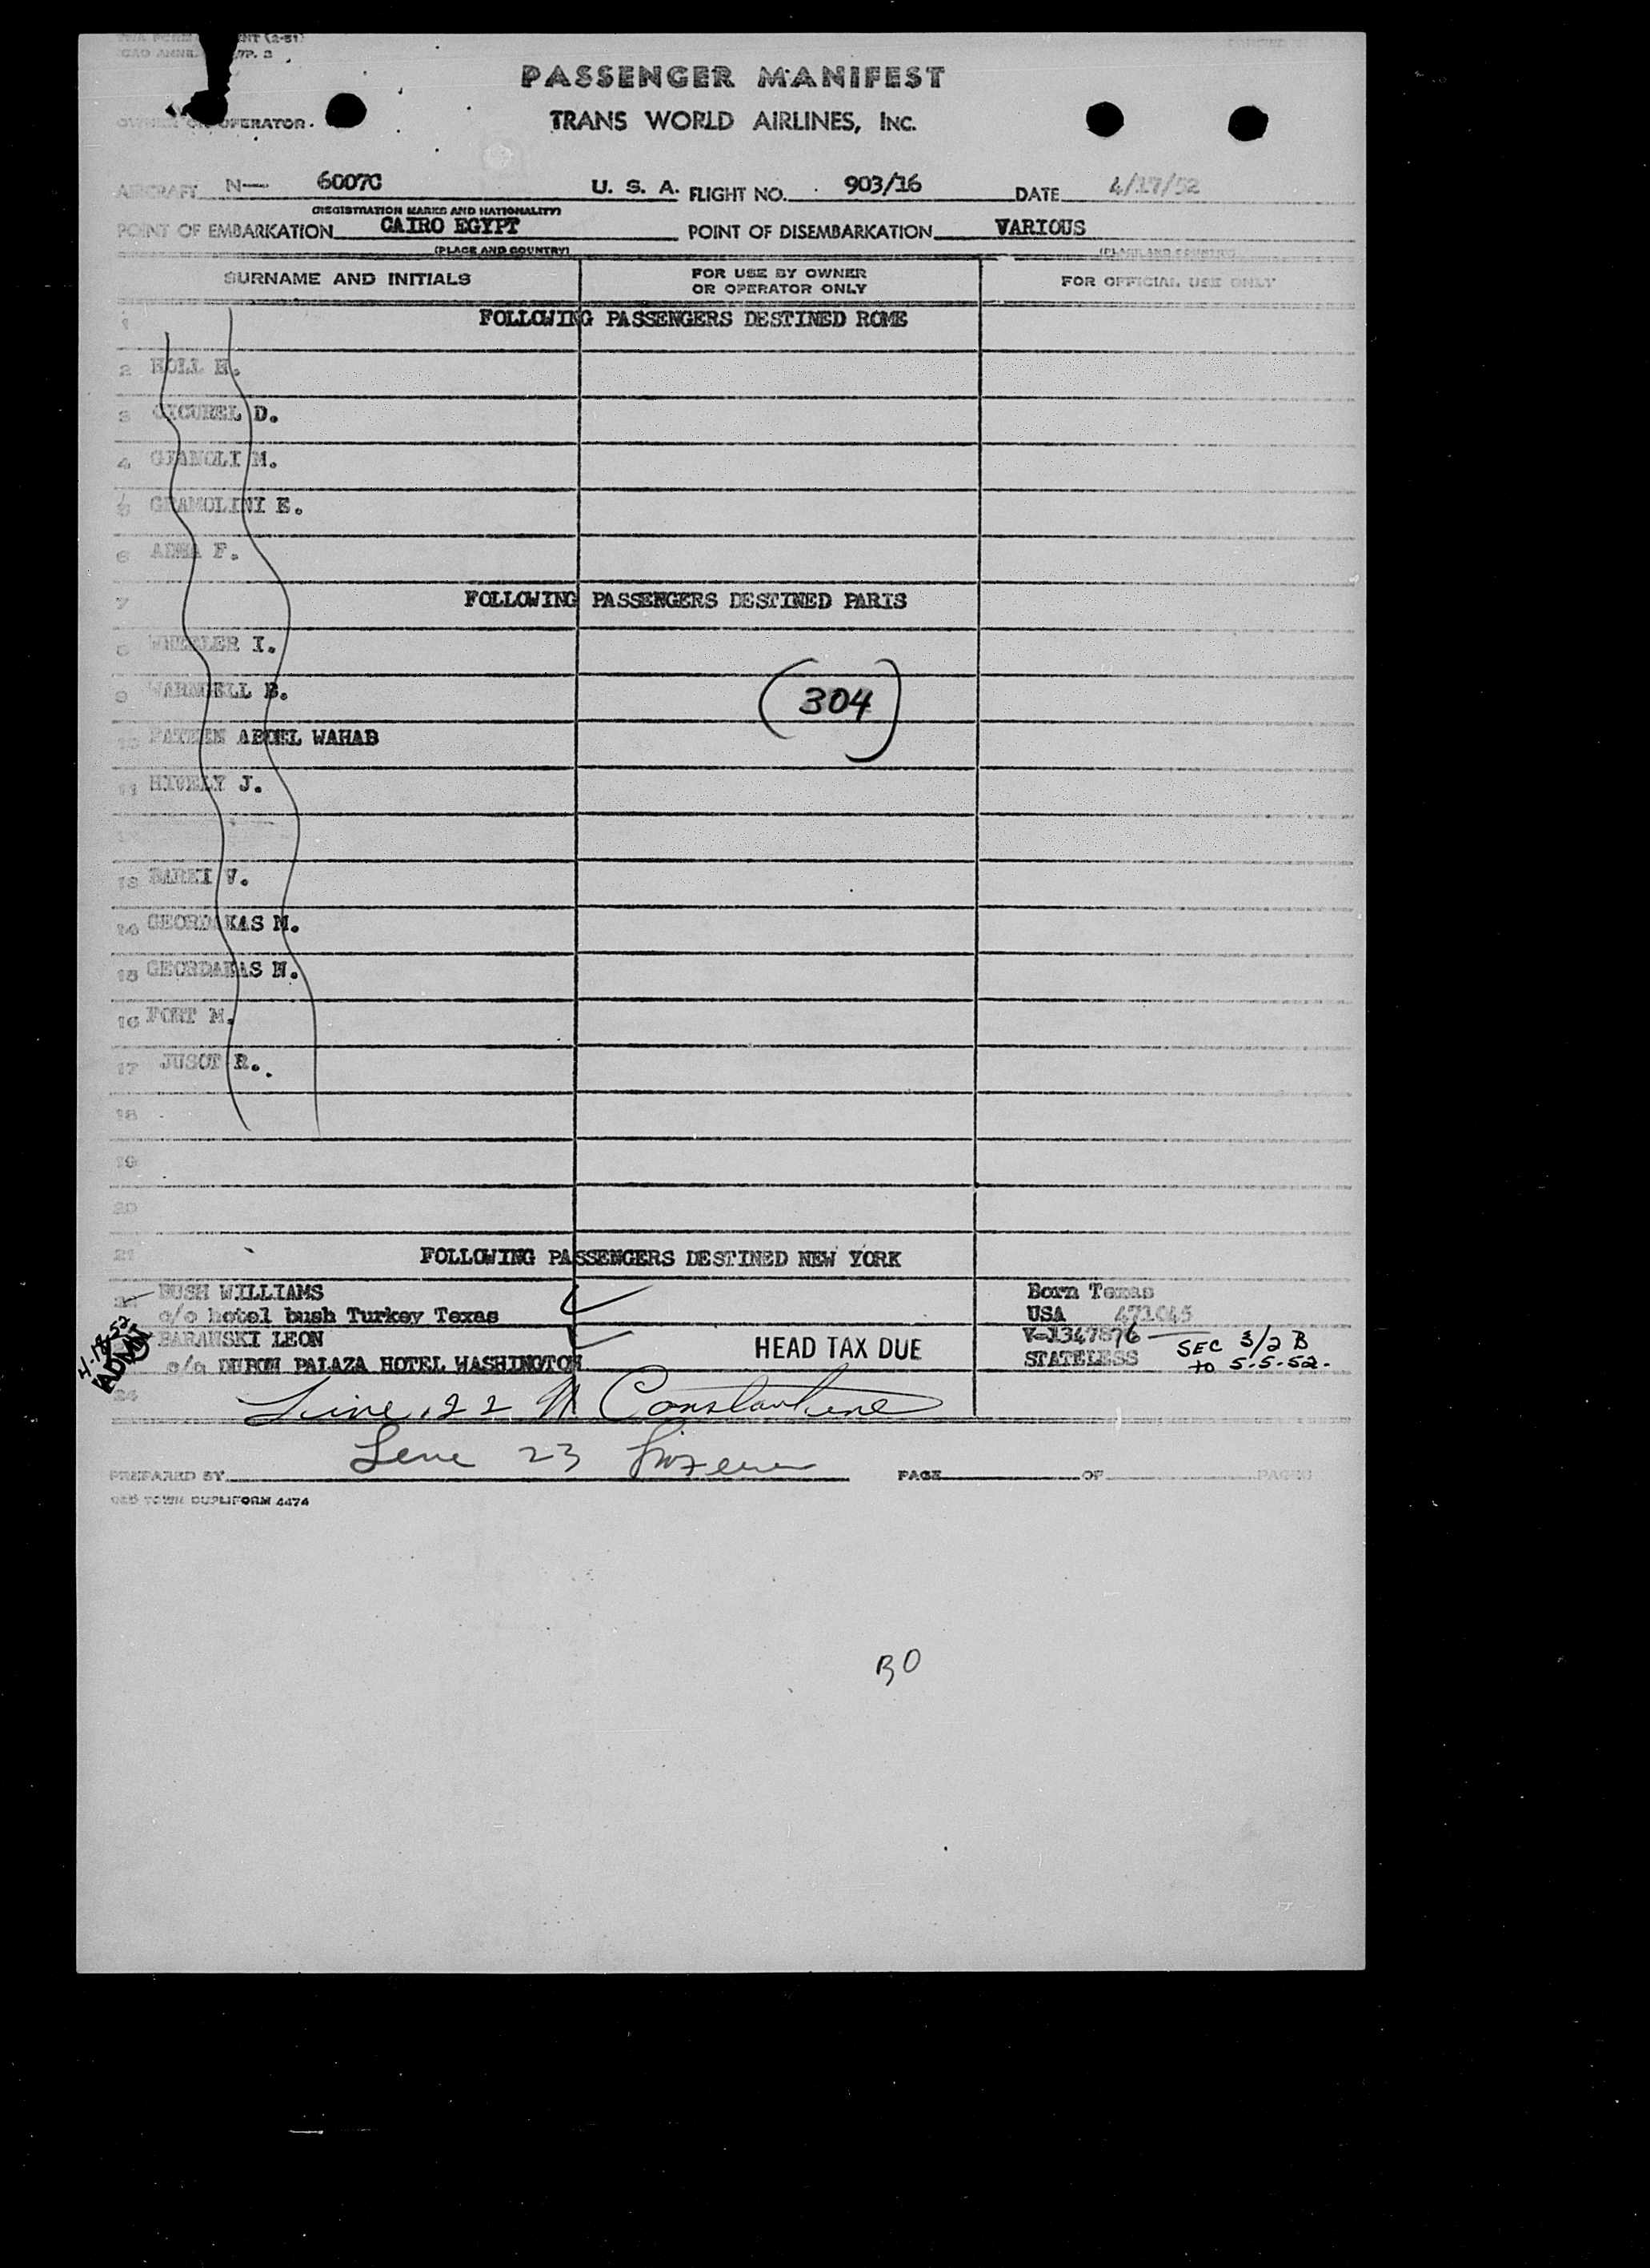 PASSENGER MANIFEST
OPERATOR.
TRANS WORLD AIRLINES, INC.
AIRCRAFT N— 6007C U. S. A. FLIGHT NO. 903/16 DATE 4/17/52
(REGISTRATION MARKS AND NATIONALITY)
POINT OF EMBARKATION CAIRO EGYPT POINT OF DISEMBARKATION VARIOUS
(PLACE AND COUNTRY) (PLACE AND COUNTRY)
SURNAME AND INITIALS FOR USE BY OWNER OR OPERATOR ONLY FOR OFFICIAL USE ONLY
1 FOLLOWING PASSENGERS DESTINED ROME
2 HOLL H.
3 CICUREL D.
4 M.
5 GRAMOLINI E.
6 F.
7 FOLLOWING PASSENGERS DESTINED PARIS
8 WHEELER I.
9 B.
(304)
10 ABDEL WAHAB
11 HIVELY J.
13 V.
14 GEORDAKAS M.
15 GEORDAKAS N.
16 FORT M.
17 JUSOT R.
18
19
20
21 FOLLOWING PASSENGERS DESTINED NEW YORK
BUSH WILLIAMS Born Texas
c/o hotel bush Turkey Texas USA 471045
4-18-52
ADMIT
BARANSKI LEON HEAD TAX DUE V-1347876 SEC 3/2 B
c/o PALAZA HOTEL WASHINGTON STATELESS to 5-5-52.
24
Line 22 N Constantine
Line 23
PREPARED BY PAGE OF PAGES
DUPLIFORM 4474
BO